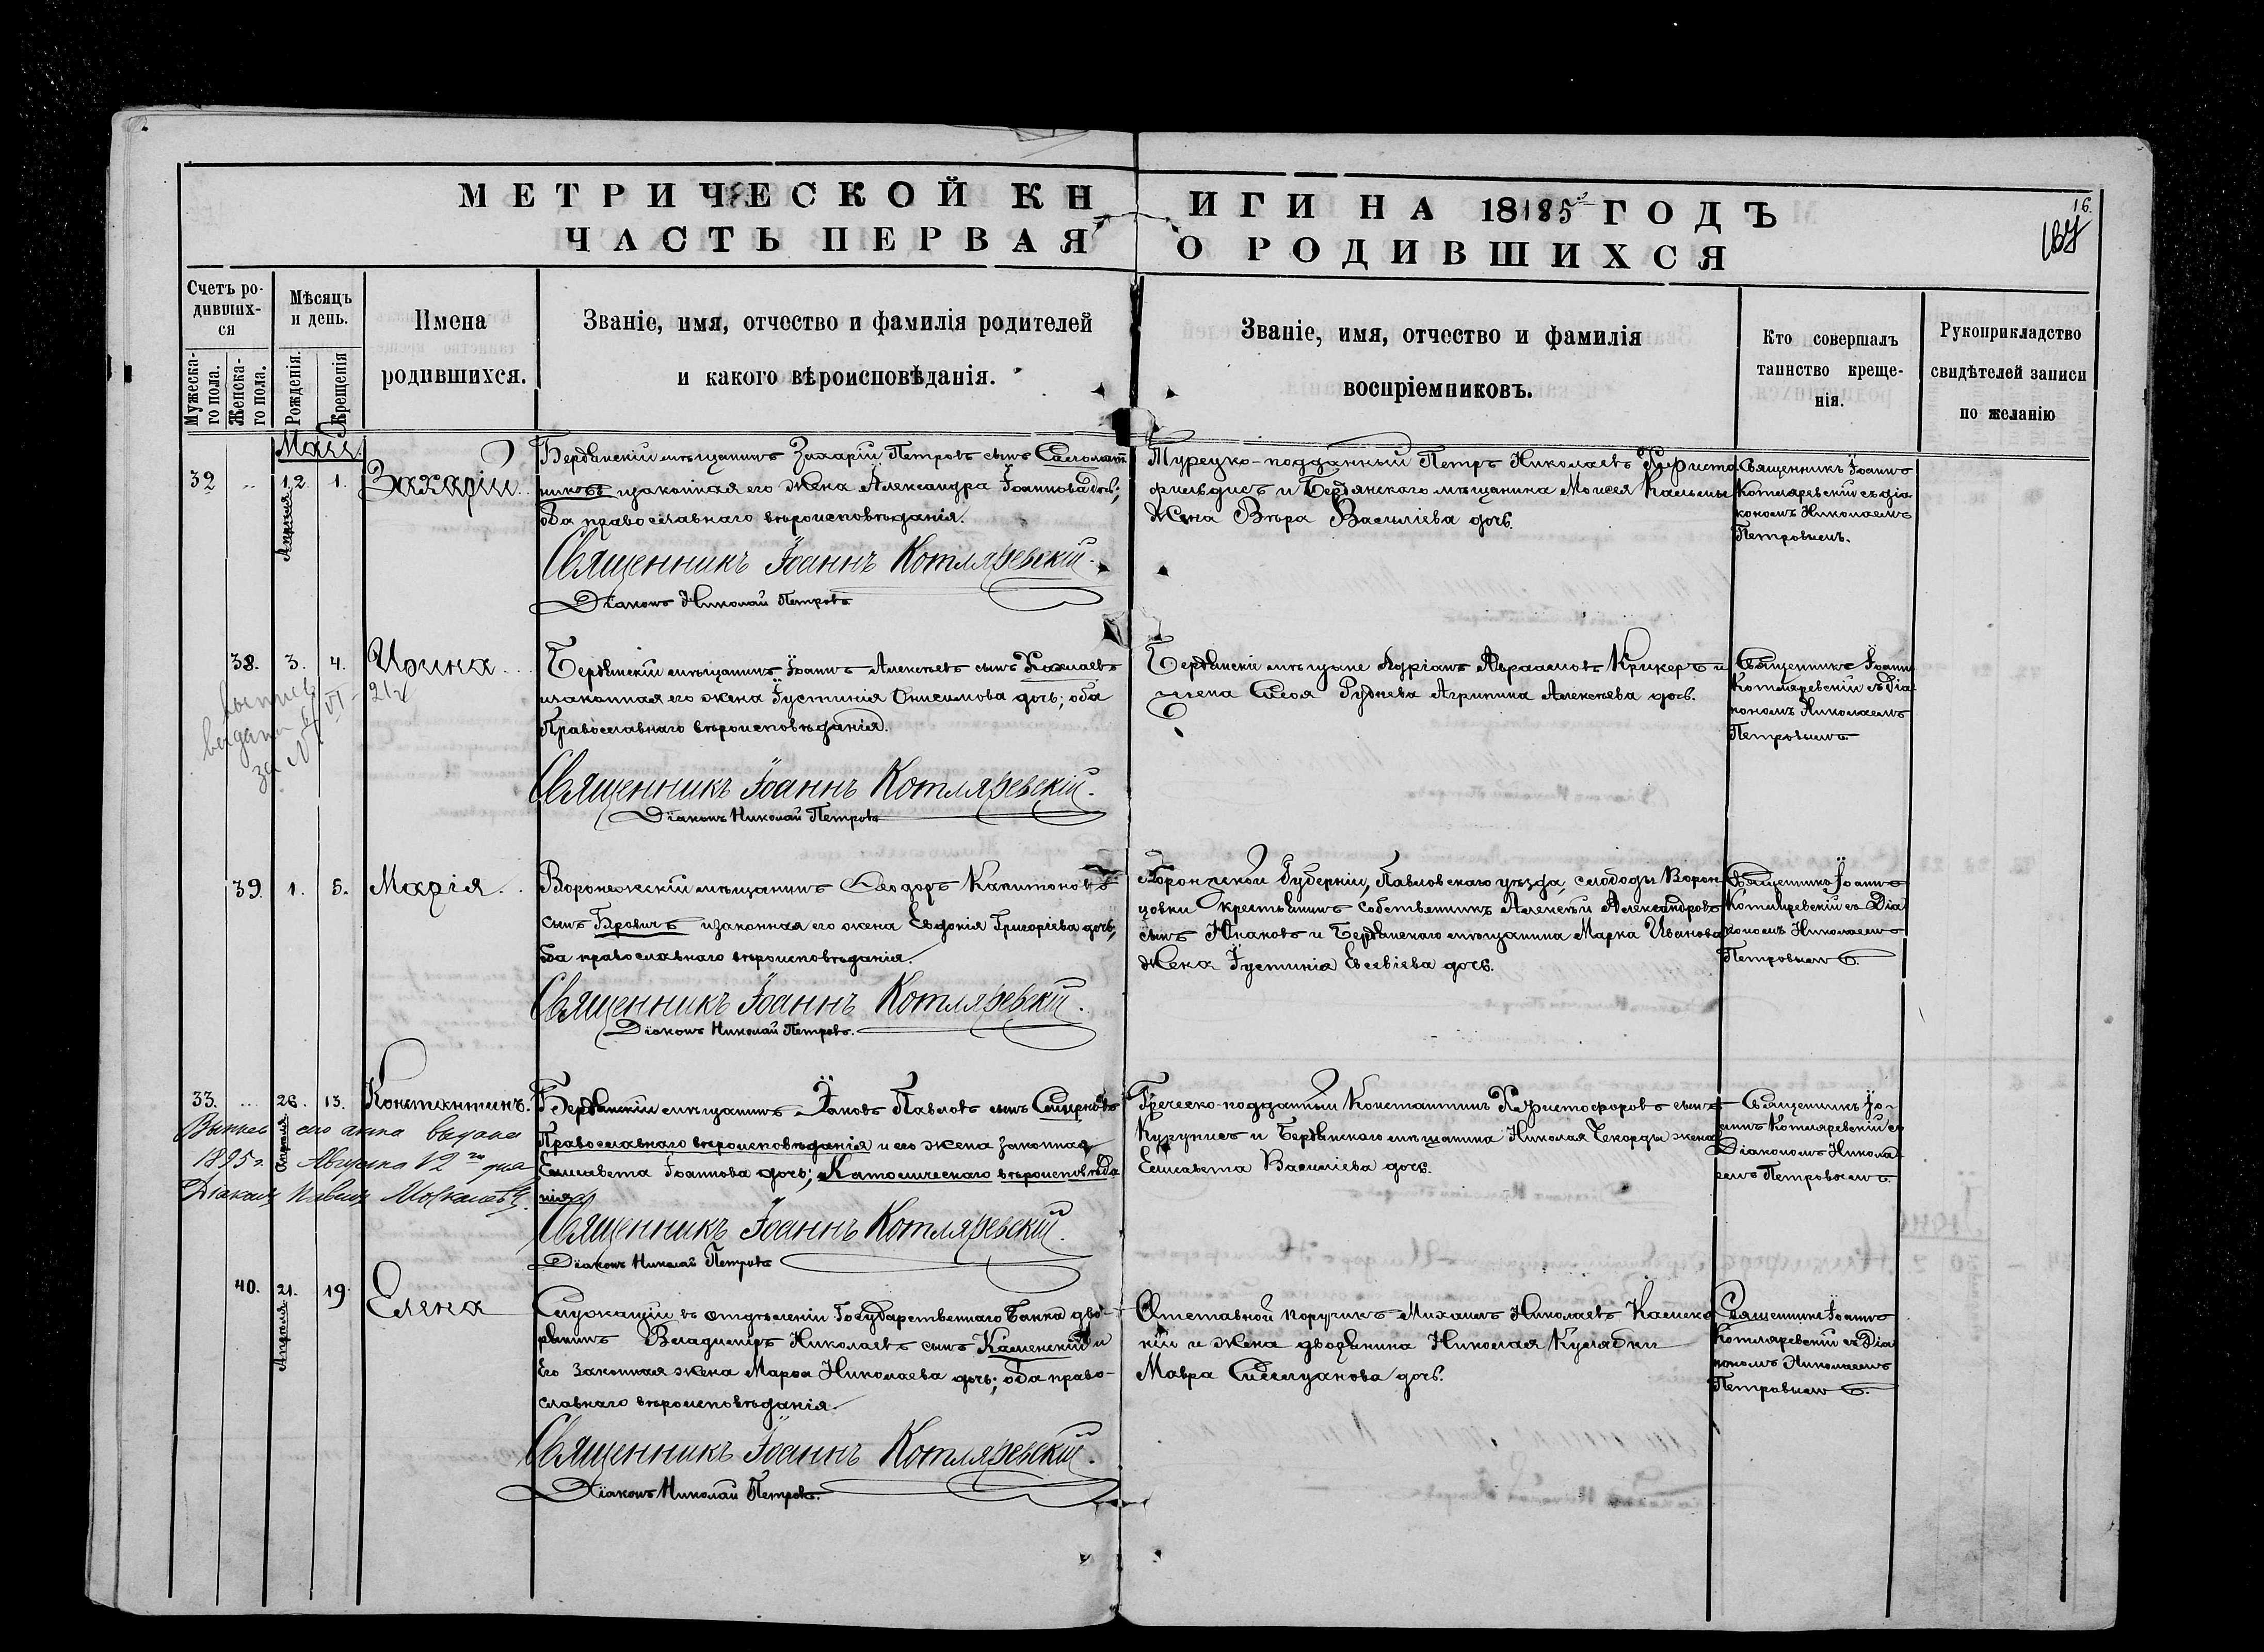 МЕТРИЧЕСКОЙ КНИГИ НА 1885 ГОДЪ
ЧАСТЬ ПЕРВАЯ О РОДИВШИХСЯ
16.
Счетъ ро-
дивших-
ся
Мужеска-
го пола.
Женска-
го пола.
Мѣсяцъ
и день.
Рожденія.
Крещенія
Имена
родившихся.
Званіе, имя, отчество и фамилія родителей
и какого вѣроисповѣданія.
Званіе, имя, отчество и фамилія
воспріемниковъ.
Кто совершалъ
таинство креще-
нія.
Рукоприкладство
свидѣтелей записи
по желанію
Май
32 12. 1. Захарій
Апрѣля
Бердянскій мѣщанинъ Захарій Петровъ сынъ
и законная его жена Александра Іоаннова дочь;
оба православнаго вѣроисповѣданія.
Священникъ Іоаннъ Котляревскій.
Діаконъ Николай Петровъ
Турецко-подданный Петръ Николаевъ Христо
фильдисъ и Бердянскаго мѣщанина Моисея
жена Вѣра Василіева дочь.
Священникъ Іоаннъ
Котляревскій съ діа
кономъ Николаемъ
Петровымъ.
38. 3. 4. Ирина
выданъ
за №
Бердянскій мѣщанинъ Іоаннъ Алексѣевъ сынъ
и законная его жена Іустинія Онисимова дочь; оба
Православнаго вѣроисповѣданія.
Священникъ Іоаннъ Котляревскій.
Діаконъ Николай Петровъ
Бердянскіе мѣщане Адріанъ Авраамовъ Крикеръ и
жена Сысоя Руднева Агрипина Алексѣева дочь.
Священникъ Іоаннъ
Котляревскій съ діа
кономъ Николаемъ
Петровымъ
39. 1. 5. Марія
Воронежскій мѣщанинъ Ѳеодоръ Капитоновъ
сынъ Бровичъ и законная его жена Евдокія Григоріева дочь;
оба православнаго вѣроисповѣданія.
Священникъ Іоаннъ Котляревскій.
Діаконъ Николай Петровъ.
Воронежской Губерніи, Павловскаго уѣзда, слободы Ворон
цовки крестьянинъ собственникъ Алексѣй Александровъ
сынъ Юнаковъ и Бердянскаго мѣщанина Марка Иванова
жена Іустинія Евсевіева дочь.
Священникъ Іоаннъ
Котляревскій съ Діа
кономъ Николаемъ
Петровымъ.
33. 26. 13. Константинъ.
Апрѣля
акта выдана
1895 г. Августа 12 го дня
Діаконъ Павелъ
Бердянскій мѣщанинъ Іаковъ Павловъ сынъ Смирновъ
Православнаго вѣроисповѣданія и его жена законная
Елисавета Іоаннова дочь; Католическаго вѣроисповѣда
нія
Священникъ Іоаннъ Котляревскій.
Діаконъ Николай Петровъ
Греческо-подданный Константинъ Христофоровъ сынъ
Куруписъ и Бердянскаго мѣщанина Николая Чекорды жена
Елисавета Василіева дочь.
Священникъ Іо-
аннъ Котляревскій съ
Діакономъ Никола
емъ Петровымъ.
40. 21. 19. Елена
Апрѣля
Служащій въ отдѣленіи Государственнаго Банка дво-
рянинъ Владиміръ Николаевъ сынъ Каменскій и
его законная жена Марѳа Николаева дочь; оба право-
славнаго вѣроисповѣданія.
Священникъ Іоаннъ Котляревскій.
Діаконъ Николай Петровъ.
Отставной поручикъ Михаилъ Николаевъ Каменс
кій и жена дворянина Николая Кулябки
Мавра Селлуянова дочь.
Священникъ Іоаннъ
Котляревскій съ Діа
кономъ Николаемъ
Петровымъ.